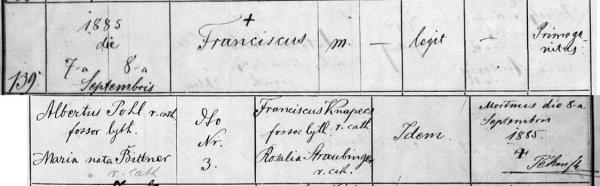 139.
1885
die
7-a 8-a
Septembris
+
Franciscus
m.
—
legit
—
Primoge-
nitus.
Albertus Pohl r. cath
fossor lyth.
Maria nata Bittner
r. cath
Nr.
3.
Franciscus Knapec
fossor lyth. r. cath
Rosalia Straubinger
r. cath.
Idem.
Mortuus die 8-a
Septembris
1885.
+